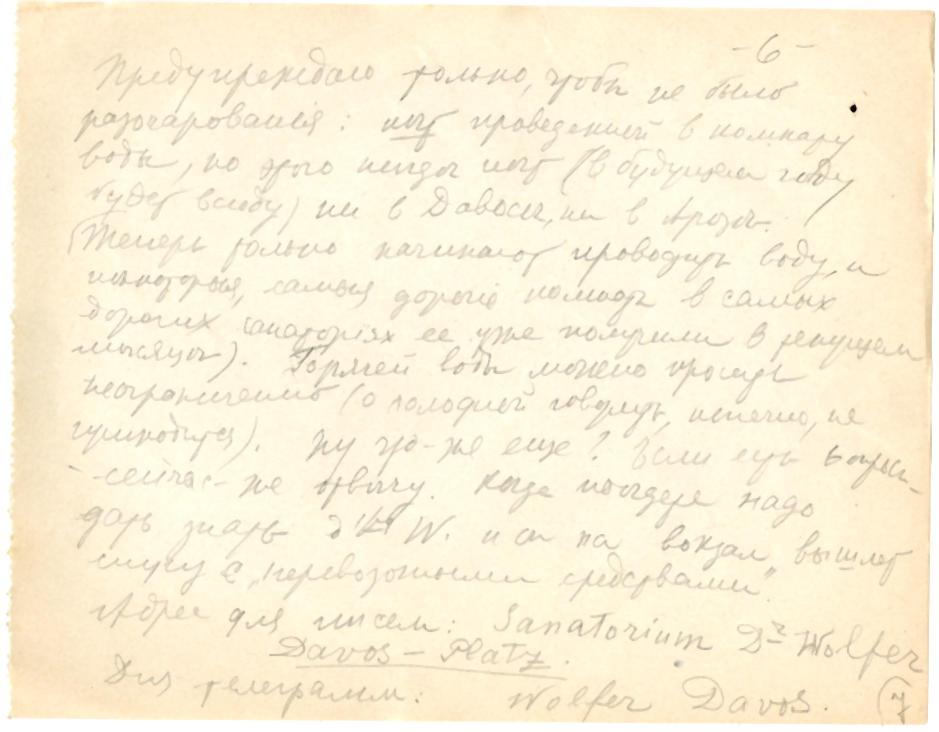 -6-
Предупреждаю только, чтобы не было
разочарованія: нѣт проведенной в комнату
воды, но этого нигдѣ нѣт (в будущем году
будет всюду) ни в Давосѣ, ни в Арозѣ.
(Теперь только начинают проводить воду, и
нѣкоторыя, самыя дорогіе комнаты в самых
дорогих санаторіях ее уже получили в текущем
мѣсяцѣ). Горячей воды можно просить
неограниченно (о холодной говорить, конечно, не
приходится). Ну что-же еще? Если есть вопросы-
-сейчас-же отвѣчу. Когда поѣдете надо
дать знать W. и он на вокзал вышлет
слугу с „перевозочными средствами".
Адрес для писем: Sanatorium Dr Wolfer
Davos-Platz.
Для телеграмм: Wolfer Davos.
7